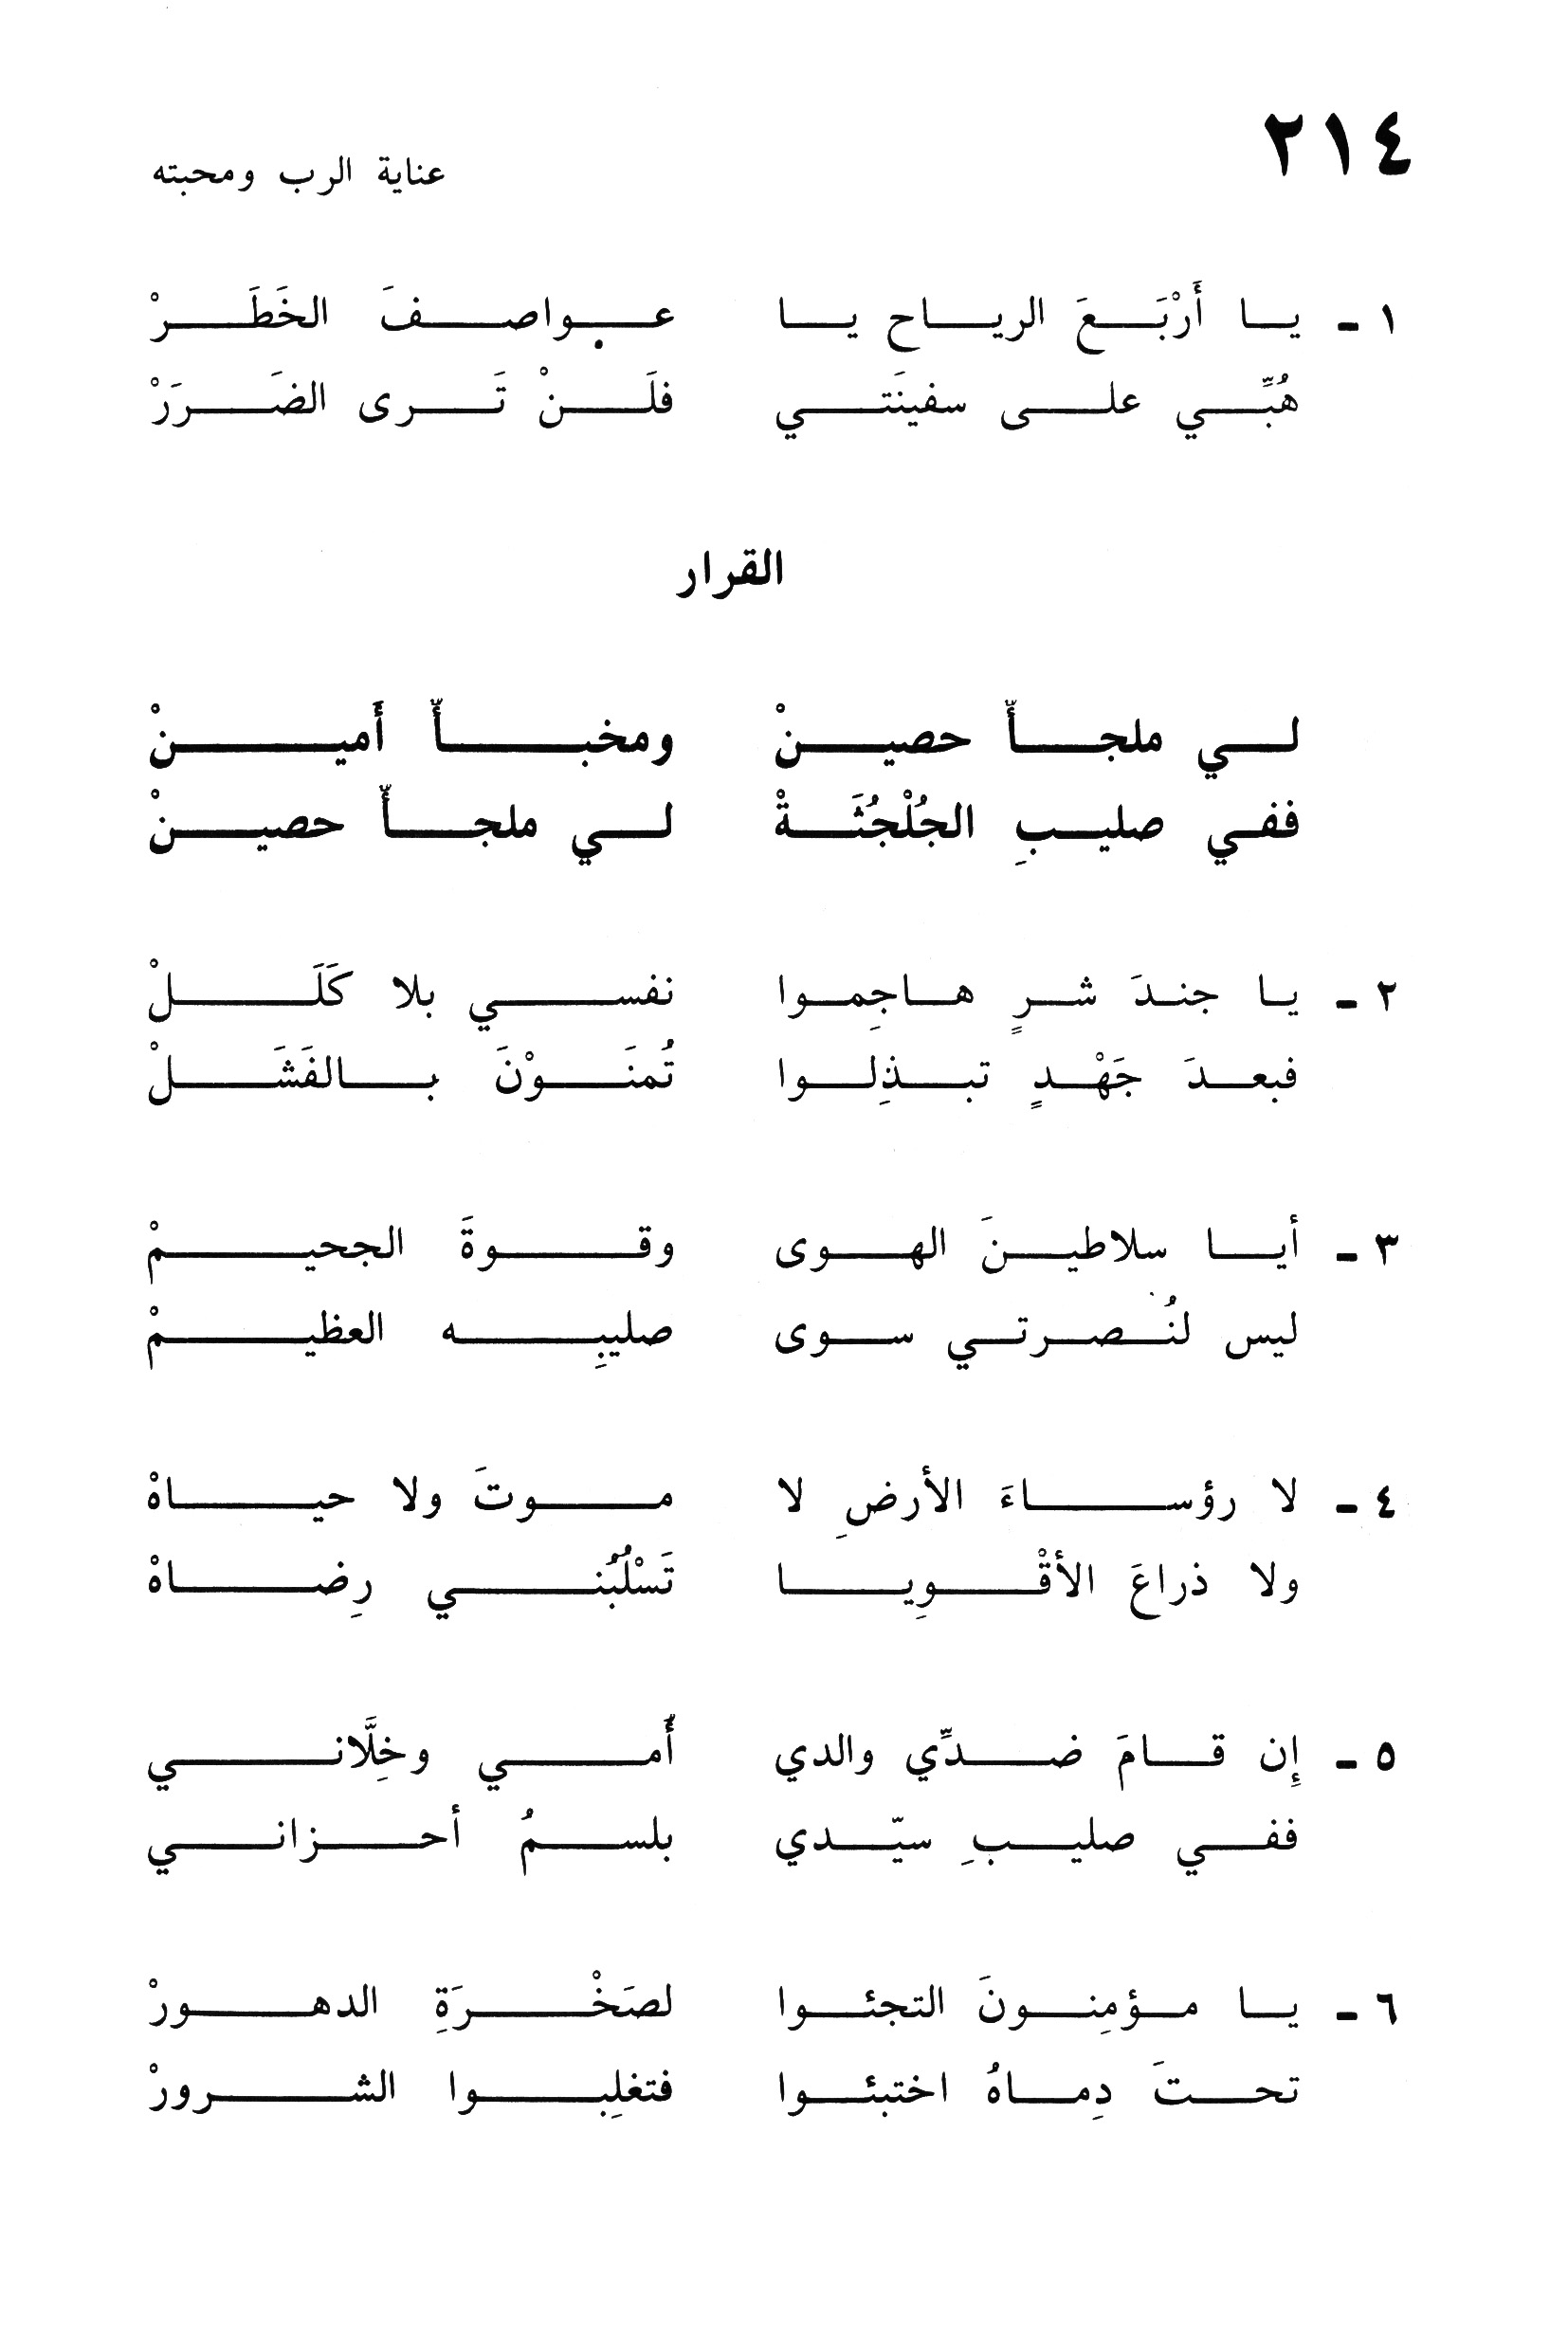 ٢١٤
عناية الرب ومحبته
١ - يا أَرْبَعَ الرياح يا عواصفَ الخَطَرْ
هُبِّي على سفينَتي فلَنْ تَرى الضَرَرْ
القرار
لي ملجأٌ حصينْ ومخبأٌ أَمينْ
ففي صليبِ الجُلْجُثَةْ لي ملجأٌ حصينْ
٢ - يا جندَ شرٍ هاجِموا نفسي بلا كَلَلْ
فبعدَ جَهْدٍ تبذِلوا تُمنَوْنَ بالفَشَلْ
٣ - أيا سلاطينَ الهوى وقوةَ الجحيمْ
ليس لنُصرتي سوى صليبِه العظيمْ
٤ - لا رؤساءَ الأرضِ لا موتَ ولا حياهْ
ولا ذراعَ الأقْوِيا تَسْلُبُني رِضاهْ
٥ - إِن قامَ ضدِّي والدي أُمي وخِلَّاني
ففي صليبِ سيّدي بلسمُ أحزاني
٦ - يا مؤمِنونَ التجئوا لصَخْرَةِ الدهورْ
تحتَ دِماهُ اختبئوا فتغلِبوا الشرورْ